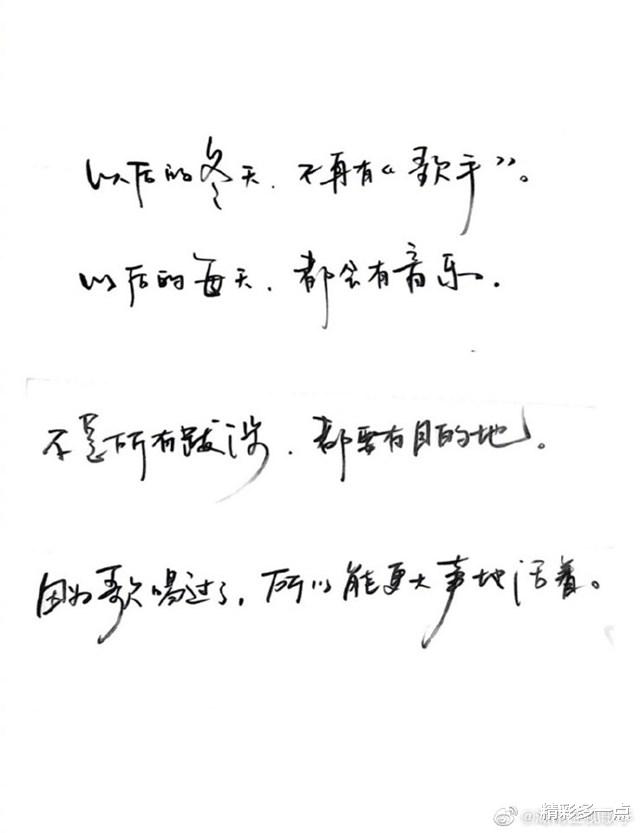 以后的冬天，不再有《歌手》。
以后的每天，都会有音乐。
不是所有跋涉，都要有目的地。
因为歌唱过了，所以能更大声地活着。
精彩多一点